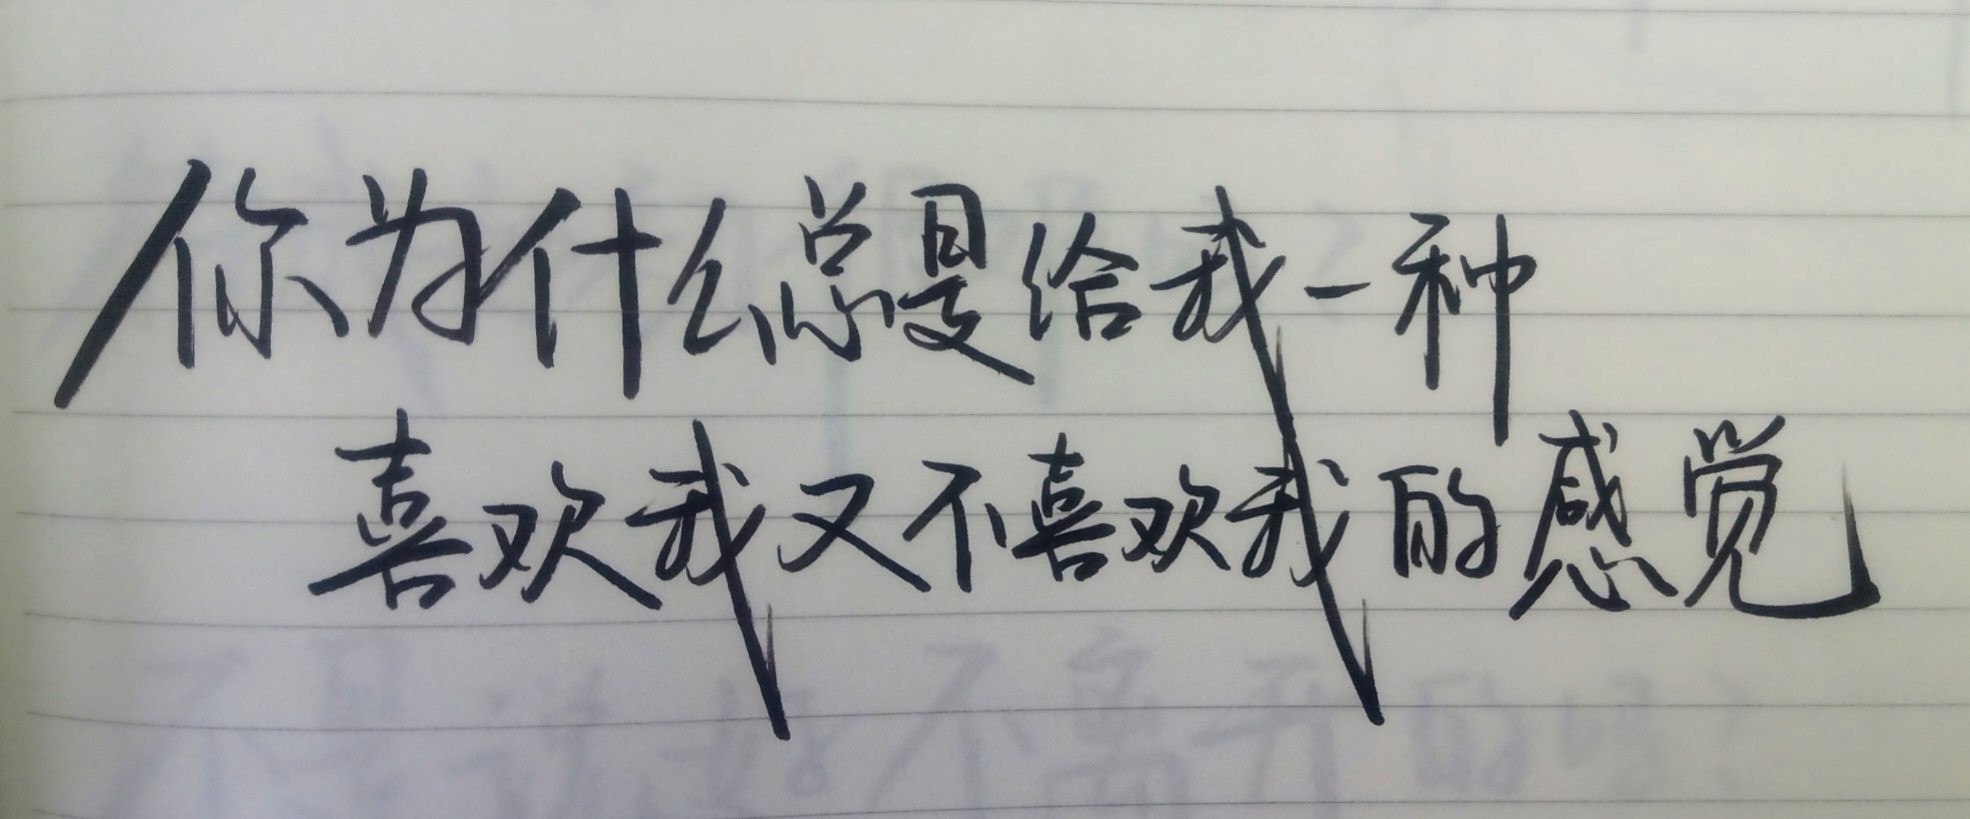 你为什么总是给我一种
喜欢我又不喜欢我的感觉